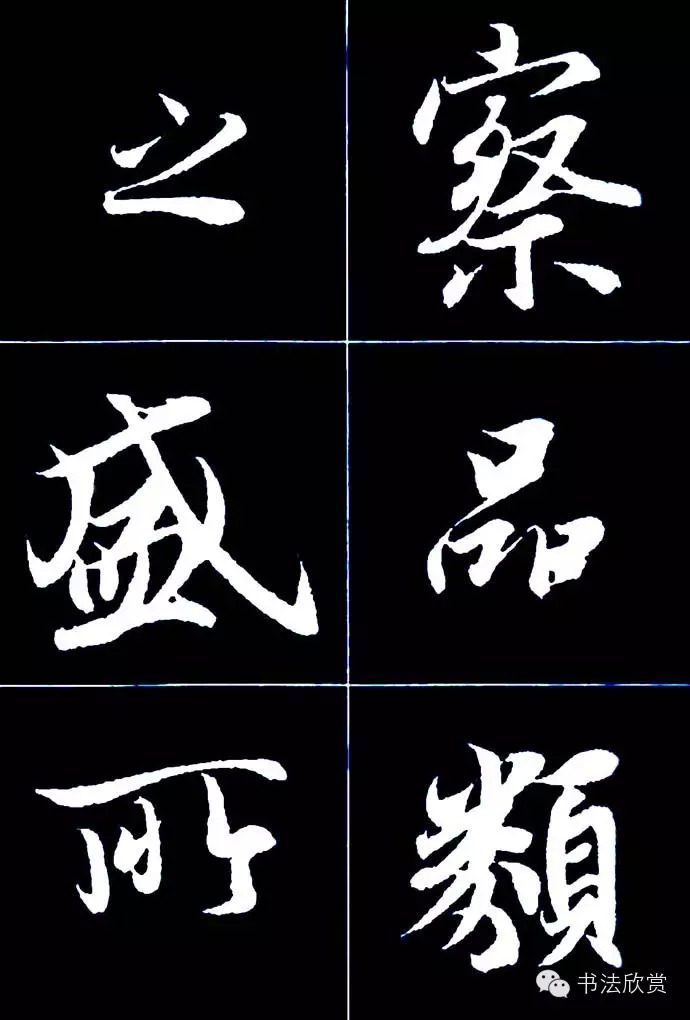 察品類
之盛所
书法欣赏